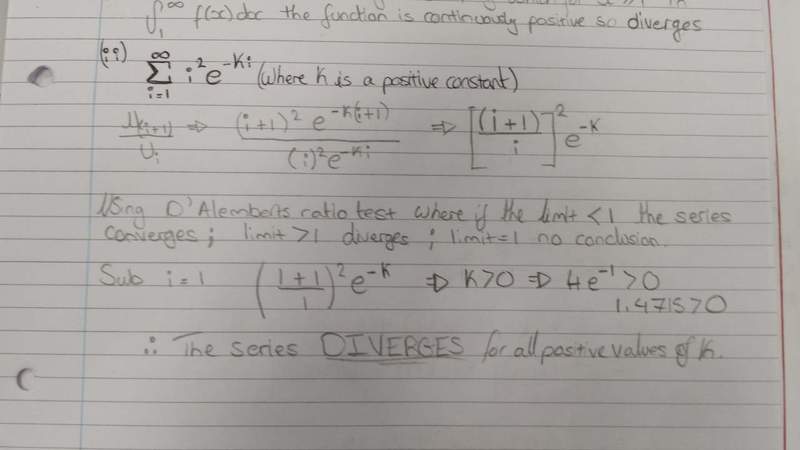 ∫₁^∞ f(x)dx the function is continuously positive so diverges
(ii) ∞Σi=1 i²e^-Ki (where K is a positive constant)
U(i+1)/Ui ⇒ (i+1)² e^-K(i+1) / (i)²e^-Ki ⇒ [(i+1)/i]² e^-K
Using D'Alemberts ratio test where if the limit <1 the series
converges; limit >1 diverges; limit=1 no conclusion.
Sub i=1 ((1+1)/1)² e^-K ⇒ K>0 ⇒ 4e^-1 >0
1.4715>0
∴ The series DIVERGES for all positive values of K.